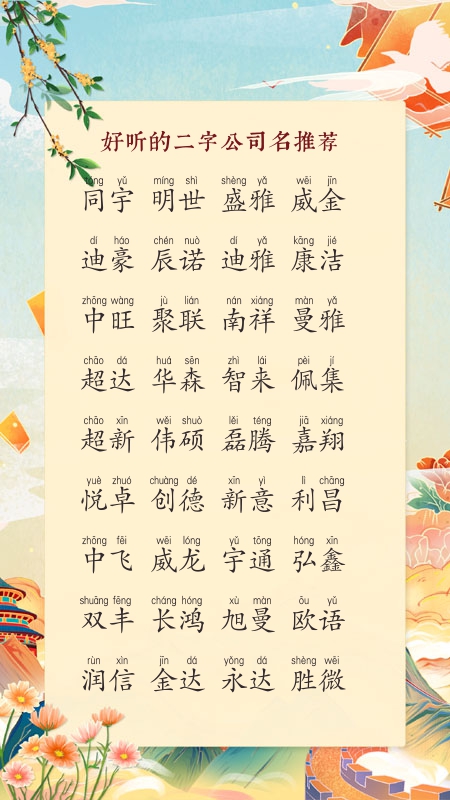 好听的二字公司名推荐
tóng yǔ míng shì shèng yǎ wēi jīn
同宇 明世 盛雅 威金
dí háo chén nuò dí yǎ kāng jié
迪豪 辰诺 迪雅 康洁
zhōng wàng jù lián nán xiáng màn yǎ
中旺 聚联 南祥 曼雅
chāo dá huá sēn zhì lái pèi jí
超达 华森 智来 佩集
chāo xīn wěi shuò lěi téng jiā xiáng
超新 伟硕 磊腾 嘉翔
yuè zhuó chuàng dé xīn yì lì chāng
悦卓 创德 新意 利昌
zhōng fēi wēi lóng yǔ tōng hóng xīn
中飞 威龙 宇通 弘鑫
shuāng fēng cháng hóng xù màn ōu yǔ
双丰 长鸿 旭曼 欧语
rùn xìn jīn dá yǒng dá shèng wēi
润信 金达 永达 胜微